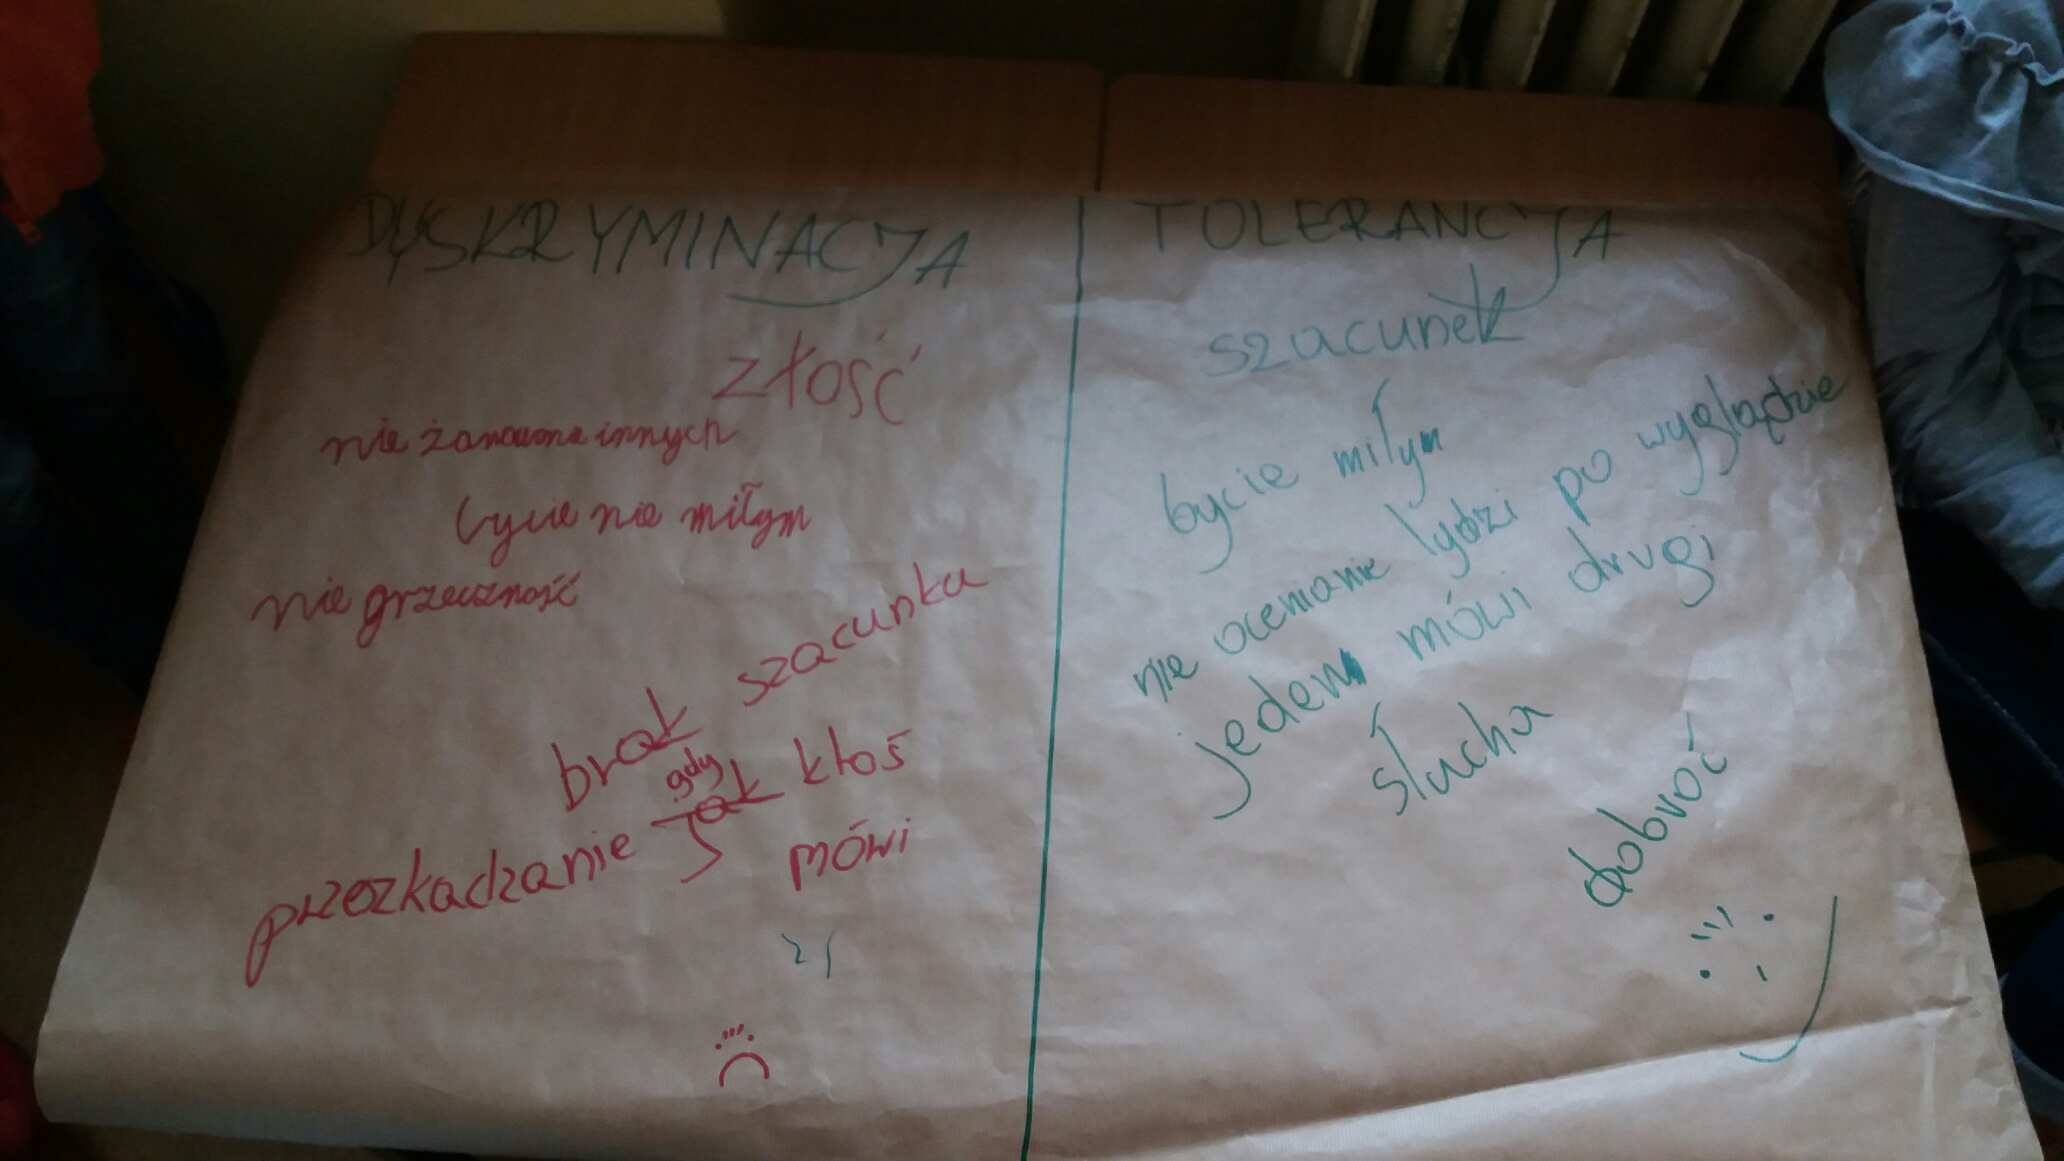 DYSKRYMINACJA
złość
nie żanowane innych
bycie nie miłym
nie grzeczność
brak szacunku
gdy
przezkadzanie jak ktoś
mówi
TOLERANCJA
szacunek
bycie miłym
nie ocenianie lydzi po wyglądzie
jeden mówi drugi
słucha
dobroć